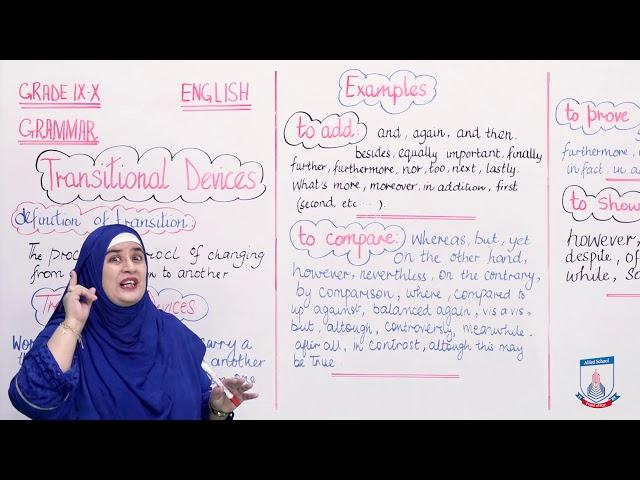 GRADE IX-X
ENGLISH
GRAMMAR
Transitional Devices
definition of transition:
The
of changing
from
to another
Wor
carry a
another
Examples
to add:
and, again, and then,
besides, equally important, finally
further, furthermore, nor, too, next, lastly.
What's more, moreover, in addition, first
(second, etc ....).
to compare:
Whereas, but, yet
on the other hand,
however, neverthless, on the contrary,
by comparison, where, compared to
up against, balanced again, vis a vis,
but, altough, controversly, meanwhile.
after all, in contrast, altough this may
be true.
to prove
furthermore,
in fact, in a
to show
however,
despite, of
while, So
Allied School